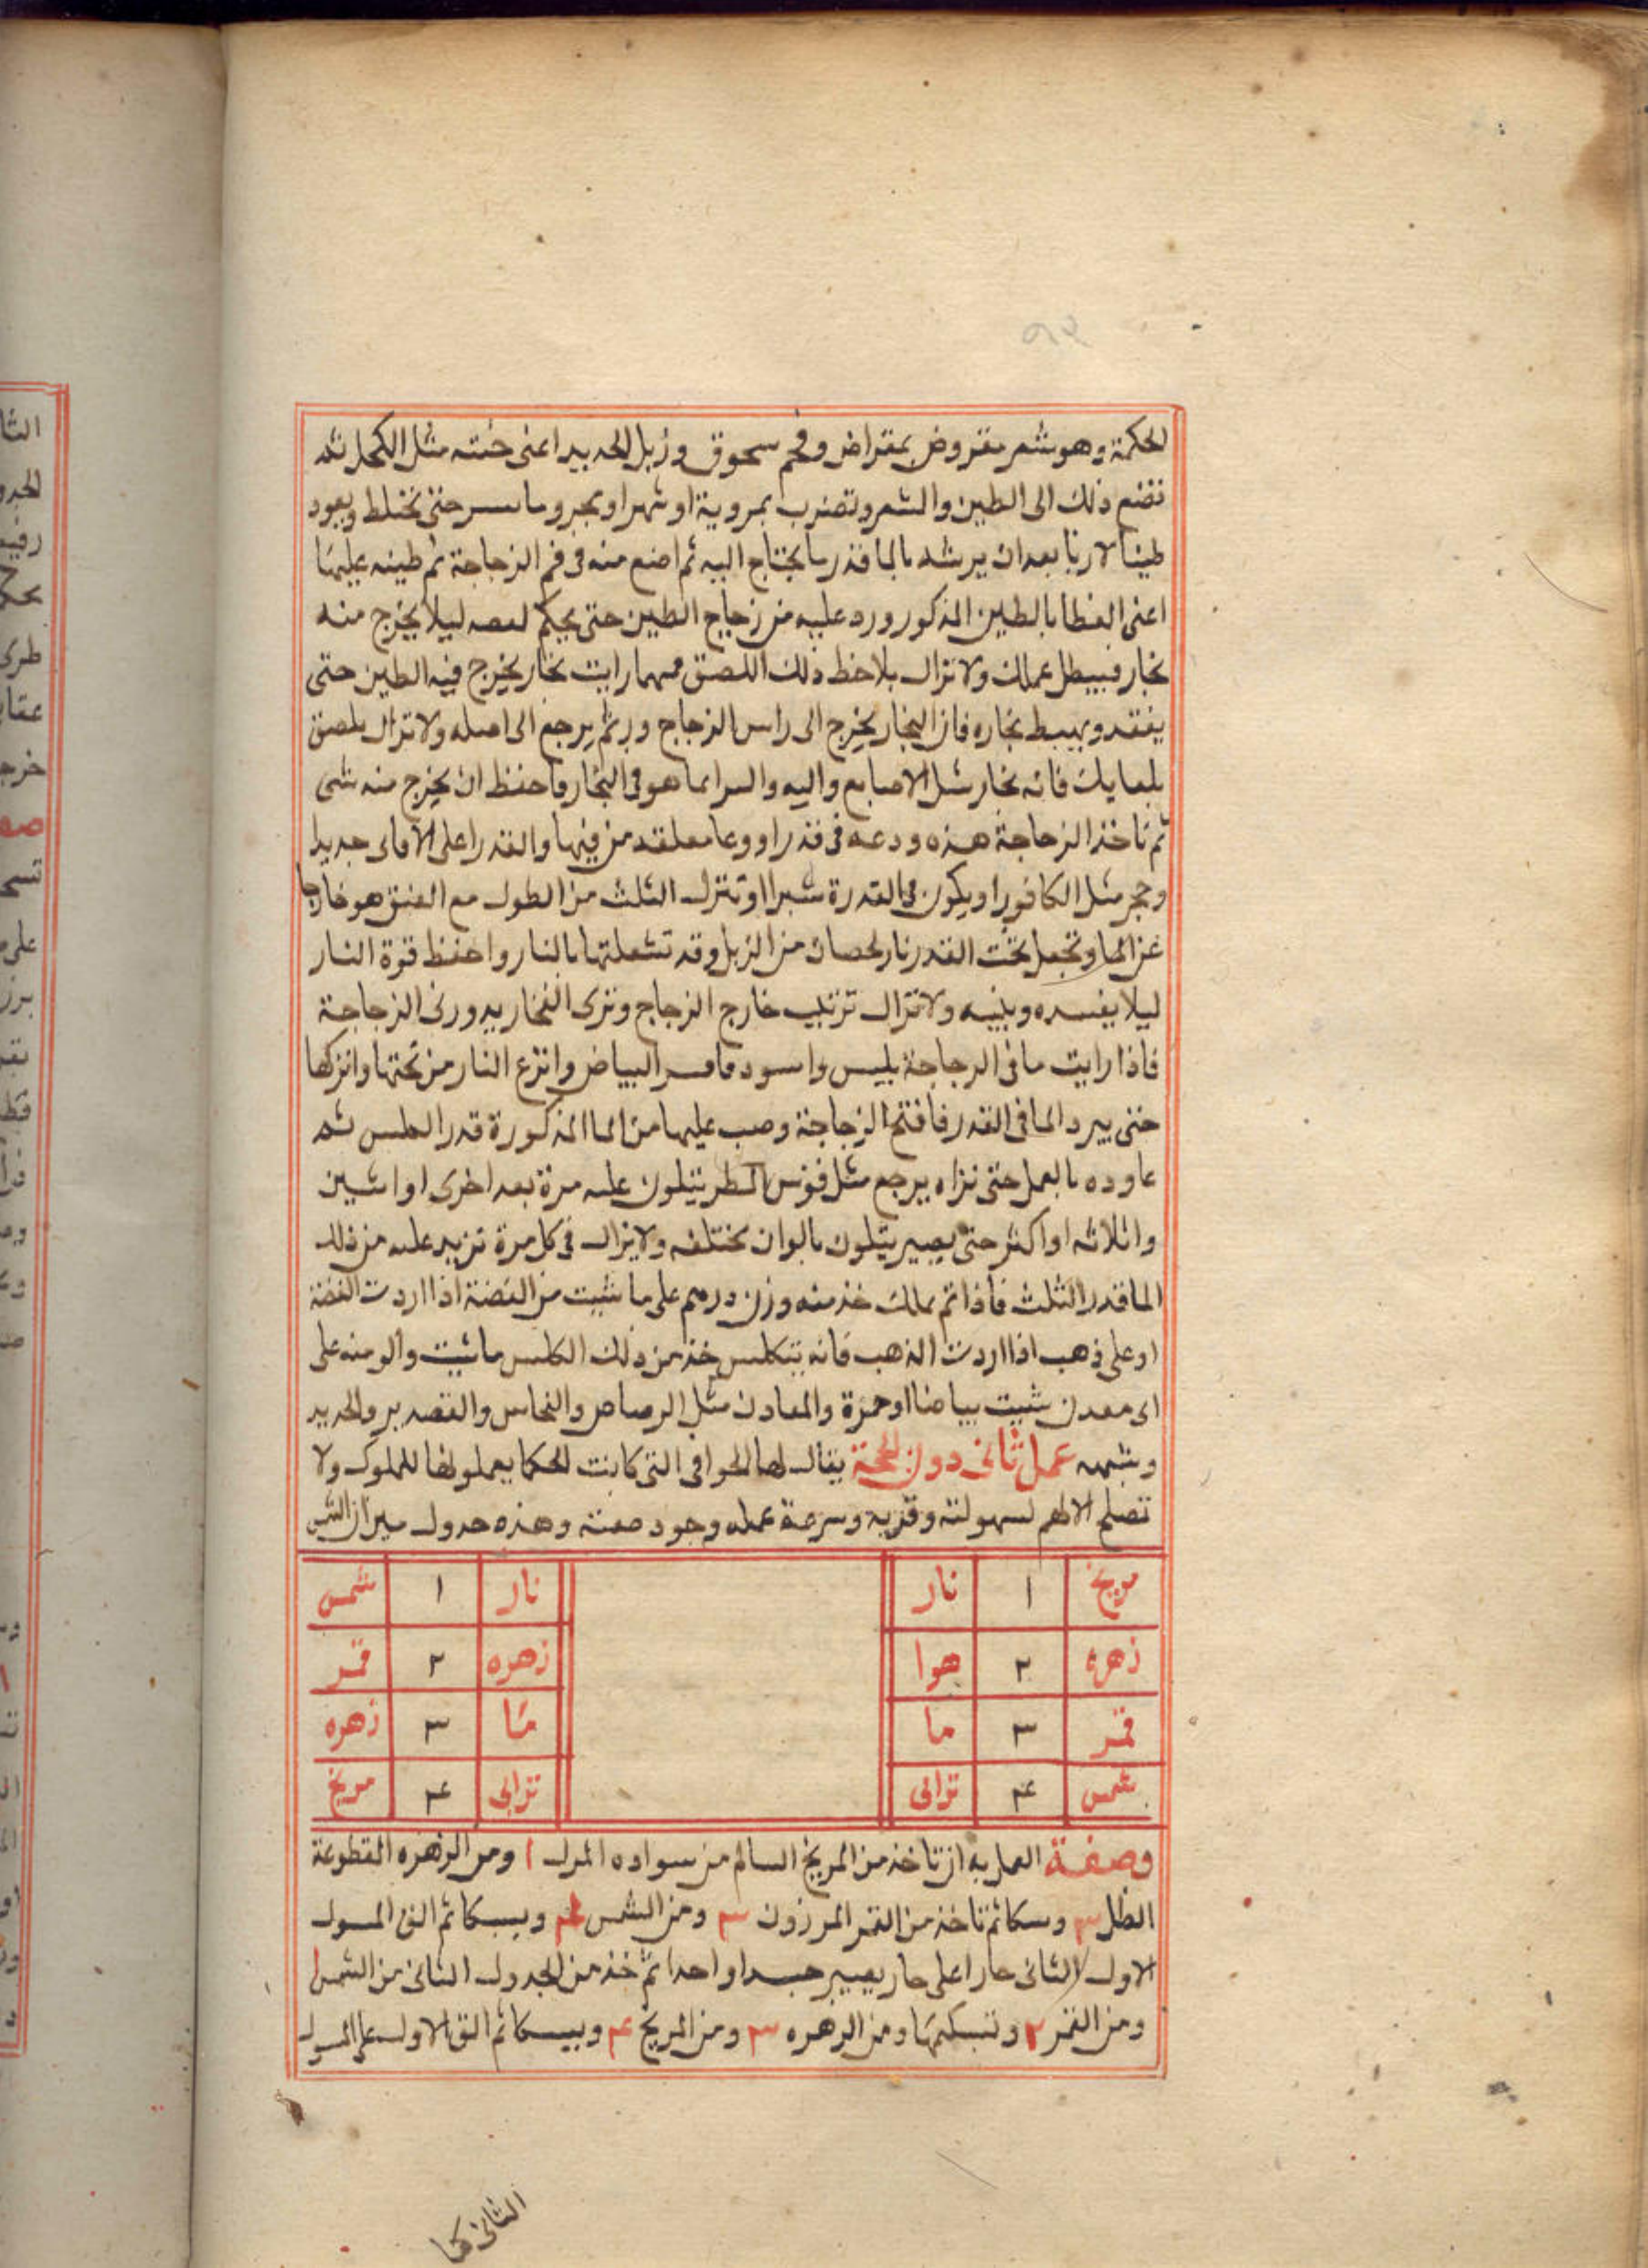 الحكمة وهو شعر مقروض بمقراض وفحم سحوق وزبل الحديد اعنى خبثه مثل الكحل ثم
تضع ذلك الى الطين والشعر وتضرب بمروية او شهر او بحر وما حتى يختلط ويعود
طينا لازبا بعد ان يرشد بالما قدر ما يحتاج اليه ثم اضع منه فى فم الزجاجة ثم طينه عليها
اعنى الغطا بالطين المذكور ورد عليه من زجاج الطين حتى يحكم لصقه ليلا يخرج منه
بخار فيبطل عملك ولا تزال بلاحظ ذلك اللصق مهما رايت بخار يخرج فيه الطين حتى
يفقد ويهبط بخاره فان البخار يخرج الى راس الزجاج ثم يرجع الى اصله ولا تزال يلصق
بلعابك فانه بخار مثل الاصابع واليه والسر انما هو فى البخار واحفظ ان يخرج منه شى
ثم تاخذ الزجاجة هذه ودعه فى قدر او وعا معلقه من فيها والقدر اعلى الاماى جديدا
وحجر مثل الكافور او يكون فى القدرة شبرا او تنزل الثلث من الطول مع العنق هو خارجا
عن الما وتجعل تحت القدر نار لحصان من الزبل وقد تشعلتها بالنار واحفظ قوة النار
ليلا يفسده ويبيه ولا تزال ترتب خارج الزجاج وترى البخار يدور فى الزجاجة
فاذا رايت ما فى الزجاجة يلبس واسود البياض وانزع النار من تحتها واتركها
حتى يبرد الما فى القدر فافتح الزجاجة وصب عليها من الما المذكورة قدر الملس ثم
عاوده بالعمل حتى نراه يرجع مثل قوس المطر يتلون عليه مرة بعد اخرى او اثنين
واثلاثه او اكثر حتى يصير يتلون بالوان مختلفه ولا يزال فى كل مرة تزيد عليه من ذلك
الما قدر الثلث فاذا تم عملك خذ منه وزن درهم على ما شيت من الفضة اذا اردت الفضة
او على ذهب اذا اردت الذهب فانه يتكلس خذ من ذلك الكلس ما شيت والق منه على
اى معدن شيت بياضا او حمرة والمعادن مثل الرصاص والنحاس والقصدير والحديد
وشبهه عمل ثانى دون الحجة يقال لها الحوافى التى كانت الحكما يعملونها للملوك ولا
تصلح الا لهم لسهولته وقربه وسرعة عمله وجود صفته وهذه جدول ميزان الشمس
مريخ ١ نار نار ١ شمس
زهره ٢ هوا زهره ٢ قمر
قمر ٣ ما ما ٣ زهره
شمس ۴ ترابى ترابى ۴ مريخ
وصفة العمل به ان تاخذ من المريخ السالم من سواده المرل ١ ومن الزهره المقطوعة
الظل ٣ وسكا ثم تاخذ من القمر المرزون ٣ ومن الشمس ۴ ويسبكا ثم الق
الاول الثانى حارا على حار يصير جسدا واحدا ثم خذ من الجدول الثانى من الشمس ١
ومن القمر ٢ وتسبكهما ومن الزهره ٣ ومن المريخ ۴ ويسبكا ثم الق الاول على
الثانى كما